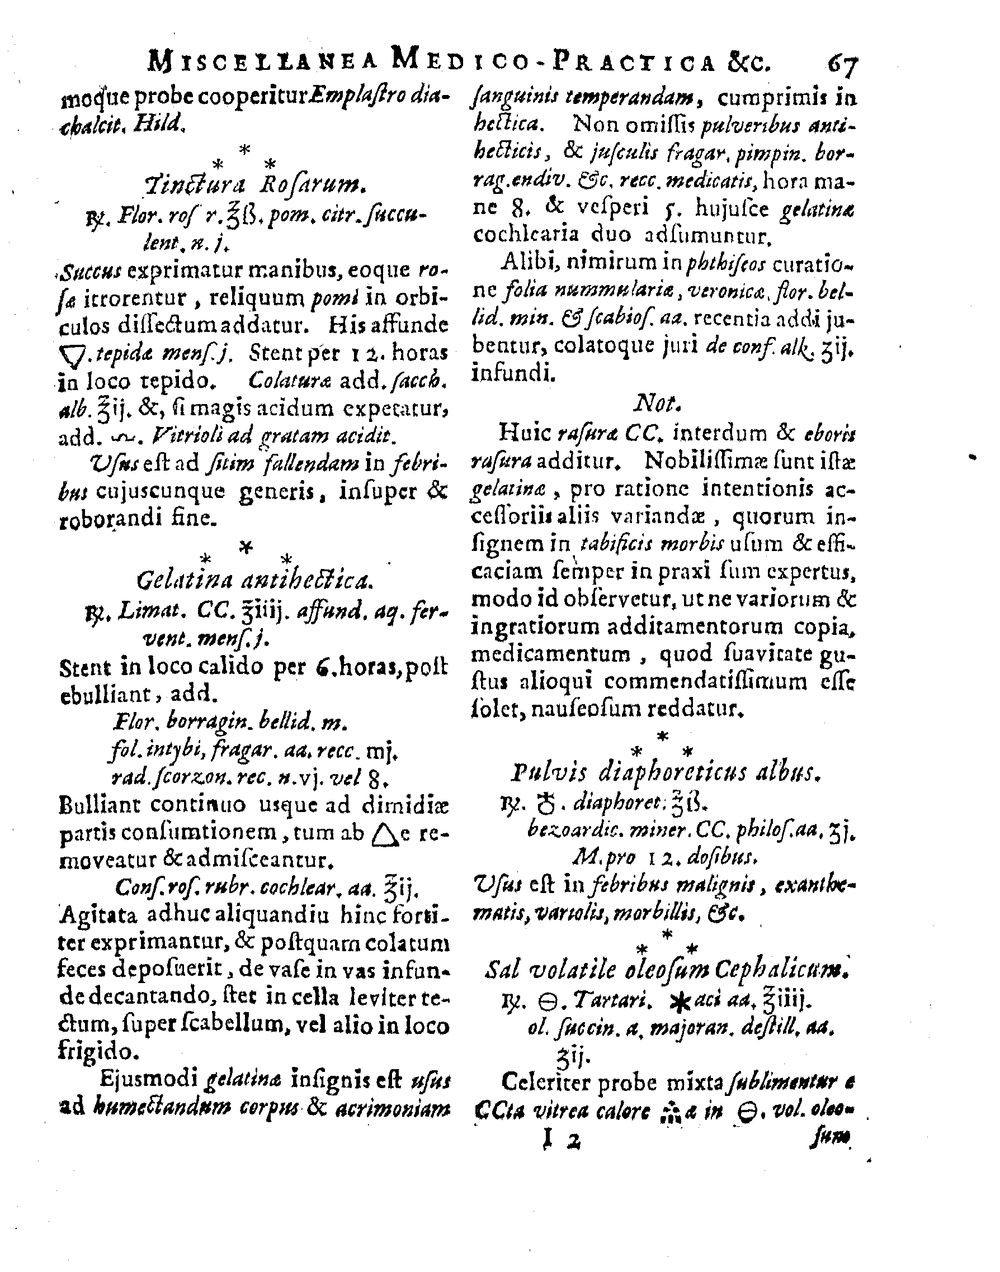 MISCELLANEA MEDICO-PRACTICA &c. 67
moque probe cooperitur Emplaſtro dia-
chalcit. Hild.
*
* *
Tinctura Roſarum.
℞. Flor. roſ r. ℥ß. pom. citr. ſuccu-
lent. n. j.
Succus exprimatur manibus, eoque ro-
ſæ irrorentur, reliquum pomi in orbi-
culos diſſectum addatur. His affunde
🜄. tepidæ menſ. j. Stent per 12. horas
in loco tepido. Colaturæ add. ſacch.
alb. ℥ij. &, ſi magis acidum expetatur,
add. Vitrioli ad gratam acidit.
Uſus eſt ad ſitim fallendam in febri-
bus cujuscunque generis, inſuper &
roborandi fine.
*
* *
Gelatina antihectica.
℞. Limat. CC. ℥iiij. affund. aq. fer-
vent. menſ. j.
Stent in loco calido per 6. horas, poſt
ebulliant, add.
Flor. borragin. bellid. m.
fol. intybi, fragar. aa. recc. mj.
rad. ſcorzon. rec. n. vj. vel 8.
Bulliant continuo usque ad dimidiæ
partis conſumtionem, tum ab 🜂e re-
moveatur & admiſceantur.
Conſ. roſ. rubr. cochlear. aa. ℥ij.
Agitata adhuc aliquandiu hinc forti-
ter exprimantur, & poſtquam colatum
feces depoſuerit, de vaſe in vas infun-
de decantando, ſtet in cella leviter te-
ctum, ſuper ſcabellum, vel alio in loco
frigido.
Ejusmodi gelatinæ inſignis eſt uſus
ad humectandum corpus & acrimoniam
ſanguinis temperandam, cumprimis in
hectica. Non omiſſis pulveribus anti-
hecticis, & juſculis fragar. pimpin. bor-
rag. endiv. &c. recc. medicatis, hora ma-
ne 8. & veſperi 5. hujuſce gelatinæ
cochlearia duo adſumuntur.
Alibi, nimirum in phthiſeos curatio-
ne folia nummulariæ, veronicæ, flor. bel-
lid. min. & ſcabioſ. aa. recentia addi ju-
bentur, colatoque juri de conf. alk. ʒij.
infundi.
Not.
Huic raſuræ CC. interdum & eboris
raſura additur. Nobiliſſimæ ſunt iſtæ
gelatinæ, pro ratione intentionis ac-
ceſſoriis aliis variandæ, quorum in-
ſignem in tabificis morbis uſum & effi-
caciam ſemper in praxi ſum expertus,
modo id obſervetur, ut ne variorum &
ingratiorum additamentorum copia,
medicamentum, quod ſuavitate gu-
ſtus alioqui commendatiſſimum eſſe
ſolet, nauſeoſum reddatur.
*
* *
Pulvis diaphoreticus albus.
℞. ♁. diaphoret. ℥ß.
bezoardic. miner. CC. philoſ. aa. ʒj.
M. pro 12. doſibus.
Uſus eſt in febribus malignis, exanthe-
matis, variolis, morbillis, &c.
*
* *
Sal volatile oleoſum Cephalicum.
℞. 🜔. Tartari. ✱aci aa. ℥iiij.
ol. ſuccin. a. majoran. deſtill. aa.
ʒij.
Celeriter probe mixta ſublimentur e
CCta vitrea calore æ in 🜔. vol. oleo-
I 2 ſum